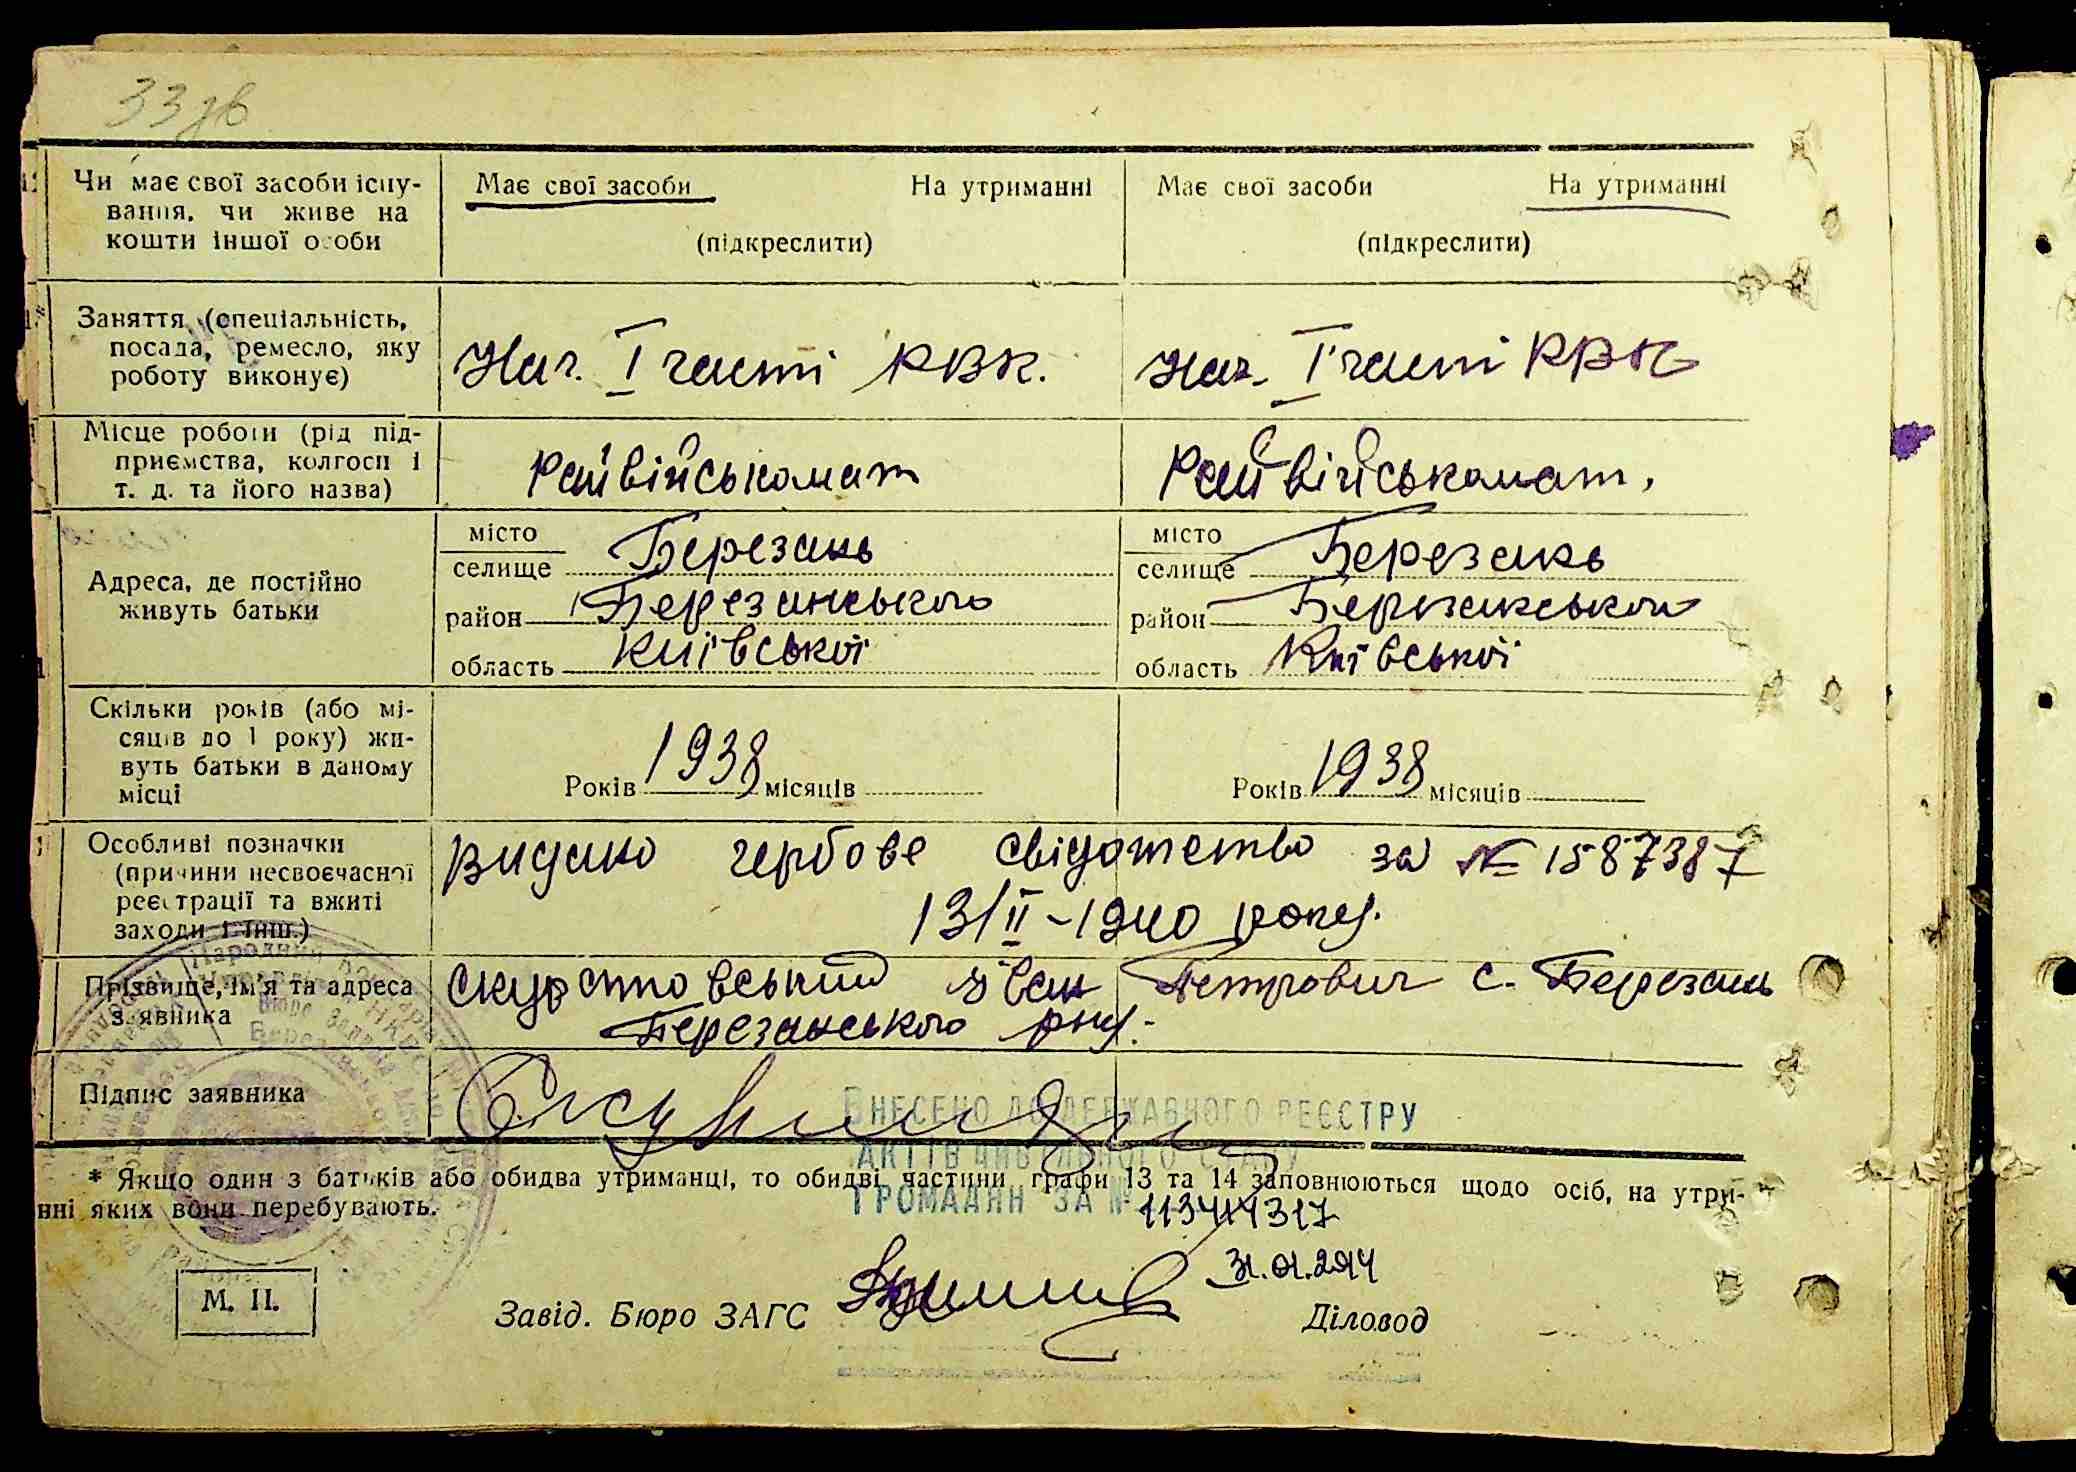 33зв
Чи має свої засоби існу-
вання, чи живе на
кошти іншої особи
Має свої засоби На утриманні
(підкреслити)
Має свої засоби На утриманні
(підкреслити)
Заняття (спеціальність,
посада, ремесло, яку
роботу виконує)
Нач. I часті РВК.
Нач. I часті РВК
Місце роботи (рід під-
приємства, колгосп і
т. д. та його назва)
Райвійськомат
Райвійськомат.
Адреса, де постійно
живуть батьки
місто
селище Березань
район Березанського
область Київської
місто
селище Березань
район Березанського
область Київської
Скільки років (або мі-
сяців до 1 року) жи-
вуть батьки в даному
місці
Років 1938 місяців
Років 1938 місяців
Особливі позначки
(причини несвоєчасної
реєстрації та вжиті
заходи і інш.)
видано гербове свідотство за № 1587387
13/II-1940 року.
Прізвище, ім'я та адреса
заявника
Петрович с. Березань
Березанського р-ну.
Підпис заявника
ВНЕСЕНО ДО ДЕРЖАВНОГО РЕЄСТРУ
АКТІВ ЦИВІЛЬНОГО СТАНУ
ГРОМАДЯН ЗА №
* Якщо один з батьків або обидва утриманці, то обидві частини графи 13 та 14 заповнюються щодо осіб, на утри-
нні яких вони перебувають.
М. П.
Завід. Бюро ЗАГС
Діловод